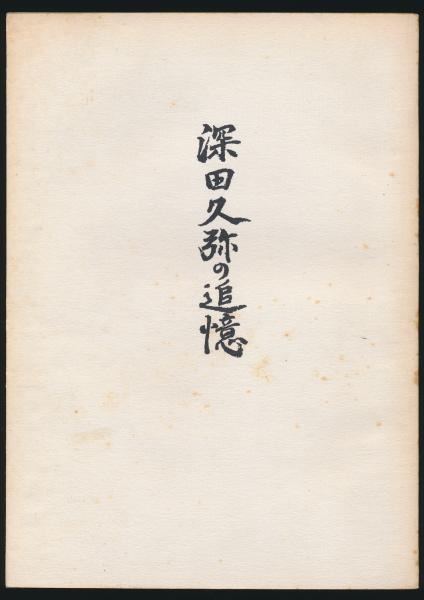 深田久弥の追憶